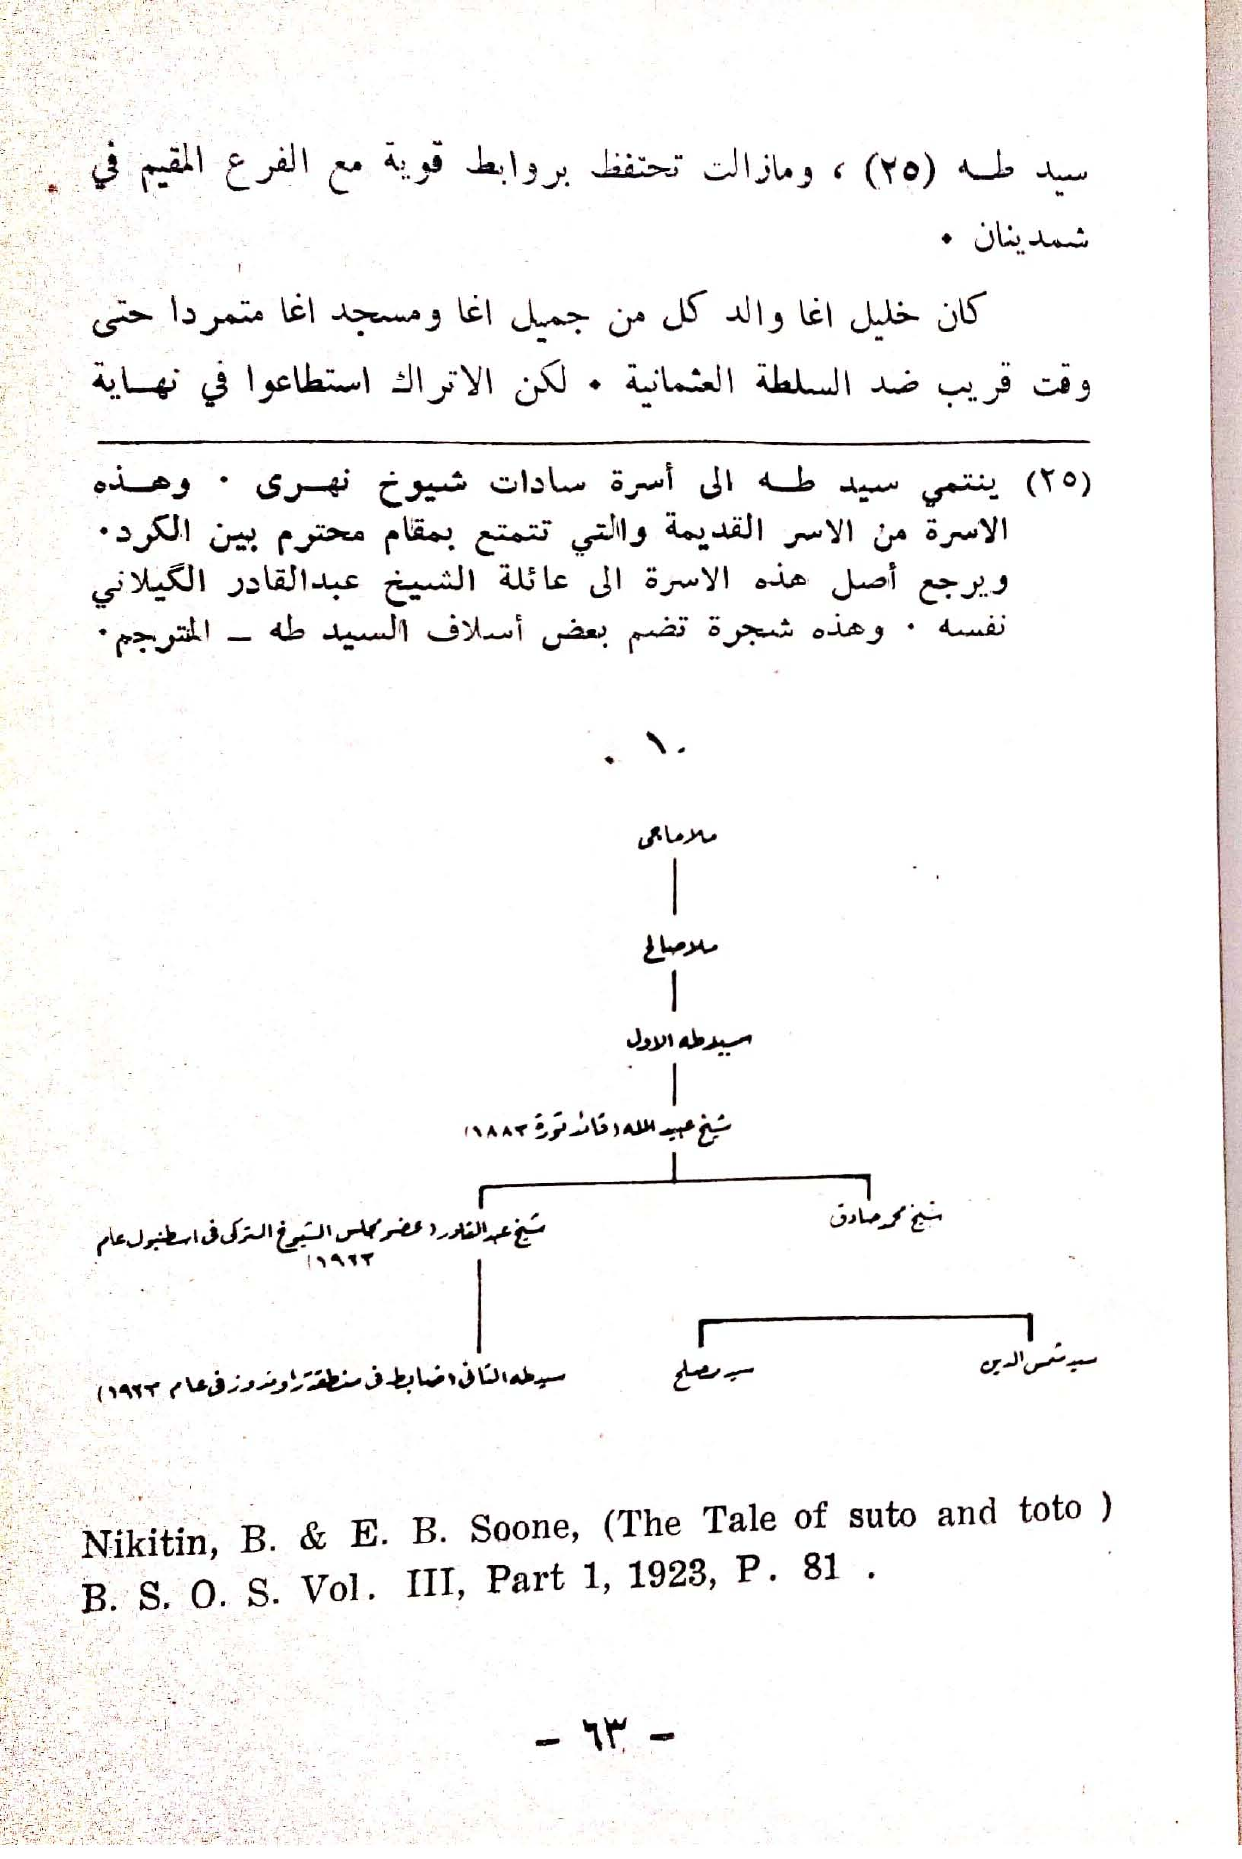 سيد طـه (٢٥) ، ومازالت تحتفظ بروابط قوية مع الفرع المقيم في
شمدينان ٠
كان خليل اغا والد كل من جميل اغا ومسجد اغا متمردا حتى
وقت قريب ضد السلطة العثمانية ٠ لكن الاتراك استطاعوا في نهـاية
(٢٥) ينتمي سيد طـه الى أسرة سادات شيوخ نهـرى ٠ وهـذه
الاسرة من الاسر القديمة والتي تتمتع بمقام محترم بين الكرد٠
ويرجع أصل هذه الاسرة الى عائلة الشيخ عبدالقادر الگيلاني
نفسه ٠ وهذه شجرة تضم بعض أسلاف السيد طه ــ المترجم٠
٠١ .
ملا حاجى
ملا صالح
سيد طه الاول
شيخ عبيد الله (قائد ثورة ١٨٨٣)
شيخ محمد صادق
شيخ عبد القادر (عضو مجلس الشيوخ التركى فى اسطنبول عام
١٩٢٣)
سيد شمس الدين
سيد مصلح
سيد طه الثانى (ضابط فى منطقة راوندوز فى عام ١٩٢٣)
Nikitin, B. & E. B. Soone, (The Tale of suto and toto )
B. S. O. S. Vol. III, Part 1, 1923, P. 81 .
– ٦٣ –